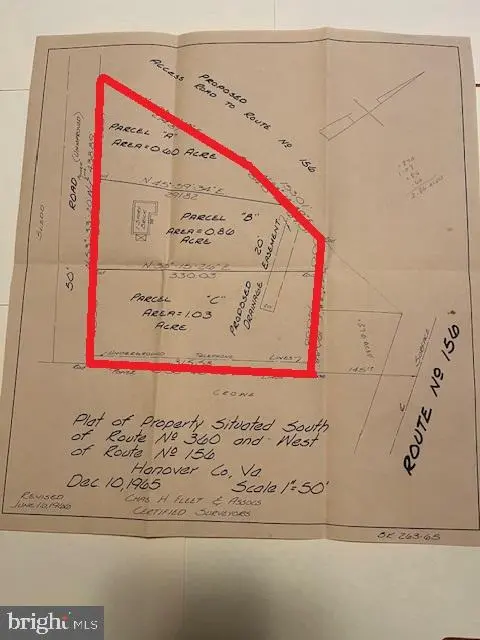 PROPOSED
ACCESS ROAD TO ROUTE Nº 156
PARCEL "A"
AREA=0.60 ACRE
N 45°59'34"E
291.82
PARCEL "B"
AREA=0.86
ACRE
20'
PROPOSED
DRAINAGE EASEMENT
ROAD
(UNIMPROVED)
50'
SLEDD
N 38°15'26"E
330.03
PARCEL "C"
AREA=1.03
ACRE
UNDERGROUND TELEPHONE LINES
POWER
315.58
145'±
CROWE
ROUTE Nº 156
Plat of Property Situated South
of Route Nº 360 and West
of Route Nº 156
Hanover Co, Va.
Dec 10, 1965 Scale 1"=50'
CHAS H FLEET & ASSOCS
CERTIFIED SURVEYORS
REVISED
JUNE 10, 1966
BK 263-65
bright MLS